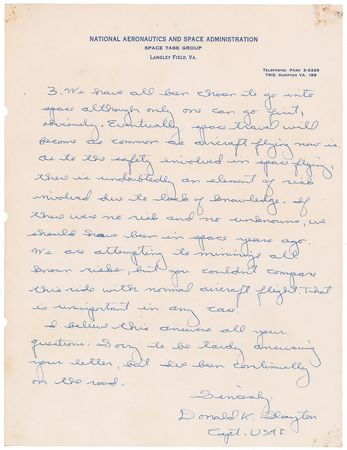 NATIONAL AERONAUTICS AND SPACE ADMINISTRATION
SPACE TASK GROUP
LANGLEY FIELD, VA.
TELEPHONE: PARK 3-3285
TWX: HAMPTON VA. 188
3. We have all been chosen to go into
space although only one can go first,
obviously. Eventually space travel will
become as common as aircraft flying now is.
As to the safety involved in space flying,
there is undoubtedly an element of risk
involved due to lack of knowledge. If
there were no risk and no unknowns, we
should have been in space years ago.
We are attempting to minimize all
known risks, but you couldn't compare
this risk with normal aircraft flight. That
is unimportant in any case.
I believe this answers all your
questions. Sorry to be tardy answering
your letter, but I've been continually
on the road.
Sincerely,
Donald K. Slayton
Capt. USAF